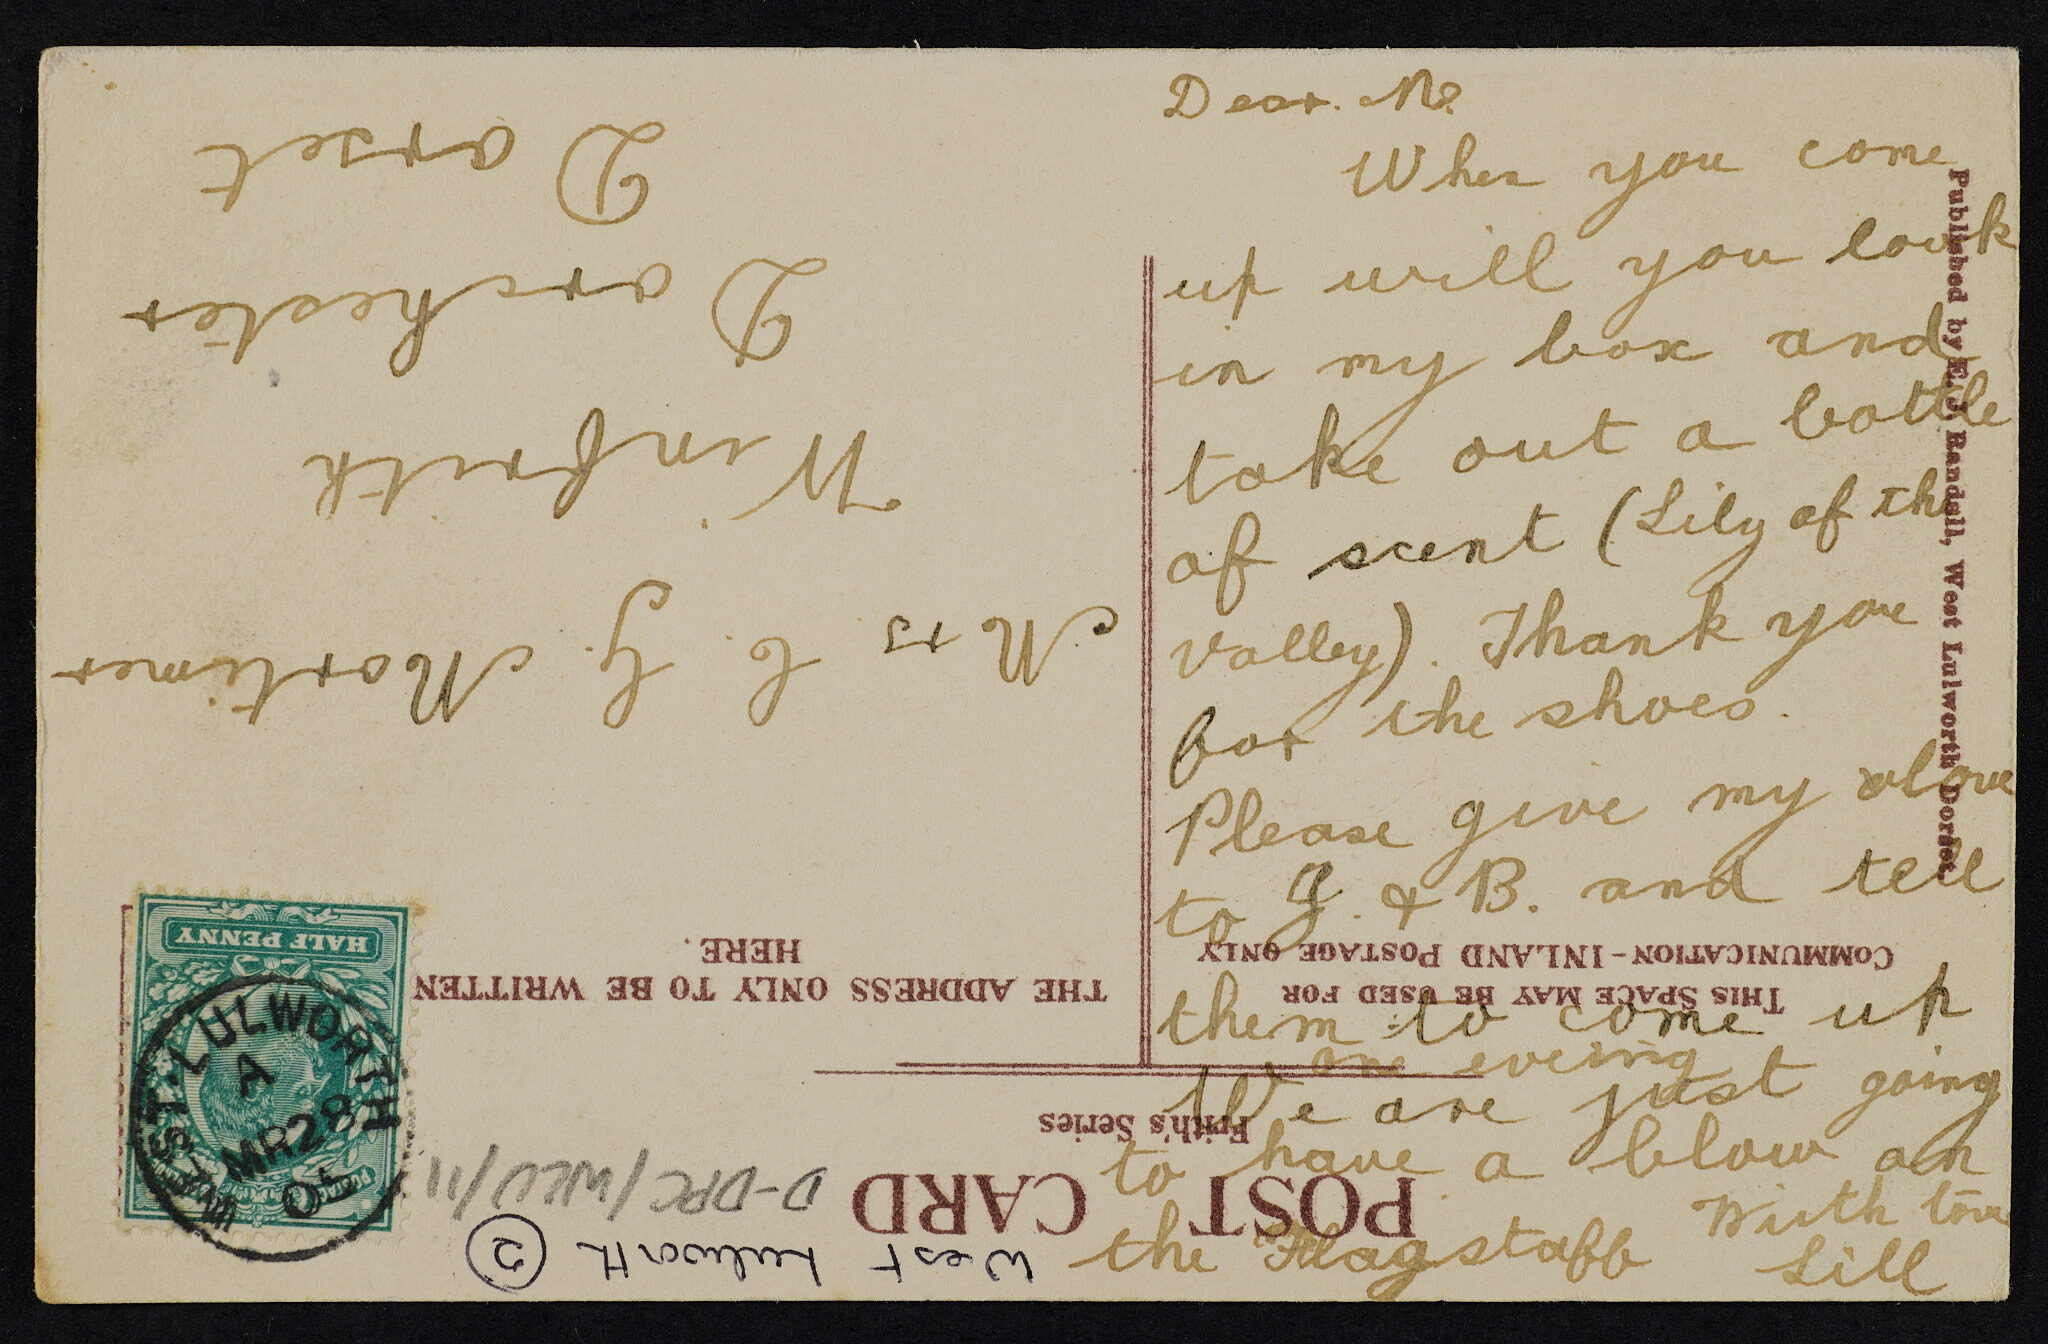 Dear. M?
When you come
up will you look
in my box and
take out a bottle
of scent (Lily of the
valley). Thank you
for the shoes.
Please give my love
to J. & B. and tell
them to come up
one evening
We are just going
to have a blow on
the Flagstaff
With love
Lill
Published by E. J. Randall, West Lulworth, Dorset.
POST CARD
Frith's Series
THIS SPACE MAY BE USED FOR
COMMUNICATION - INLAND POSTAGE ONLY
THE ADDRESS ONLY TO BE WRITTEN
HERE.
Mrs C. G. Mortimer
Winfrith
Dorchester
Dorset
HALF PENNY
POSTAGE
ST. LULWORTH
A
MR 28
05
D-DPC/WLU/11
West Lulworth 2